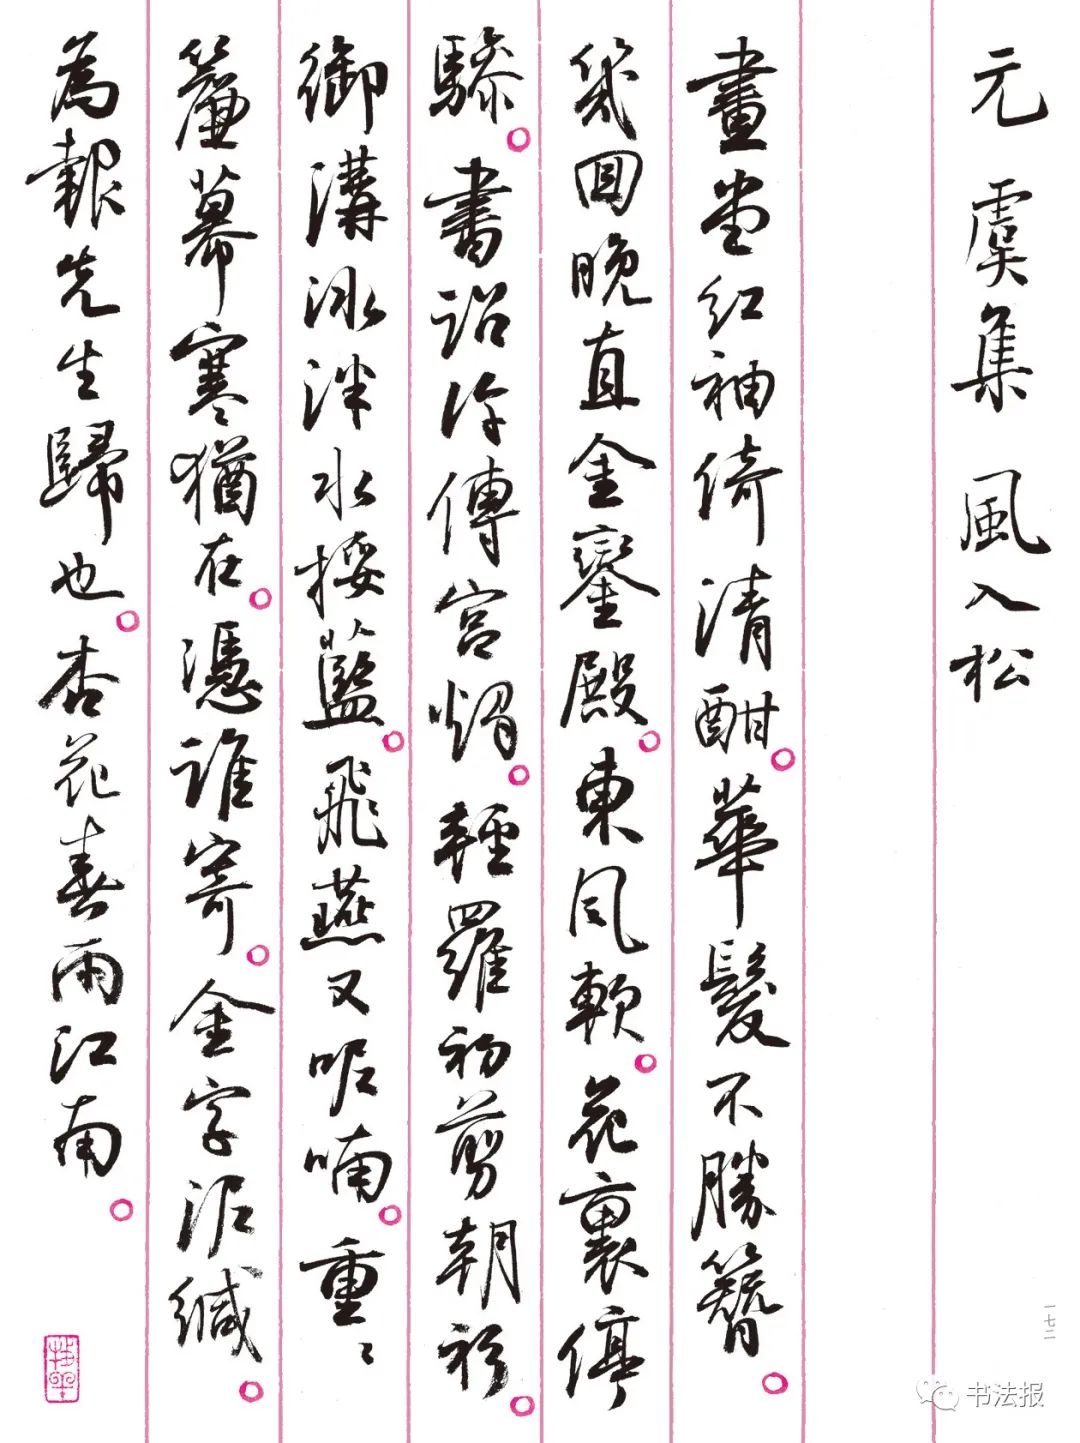 元 虞集 風入松
畫堂紅袖倚清酣。華髮不勝簪。
幾回晚直金鑾殿。東風軟。花裏停
驂。書詔許傳宮燭。輕羅初剪朝衫。
御溝冰泮水挼藍。飛燕又呢喃。重〻
簾幕寒猶在。憑誰寄。金字泥緘。
為報先生歸也。杏花春雨江南。
一七二
书法报